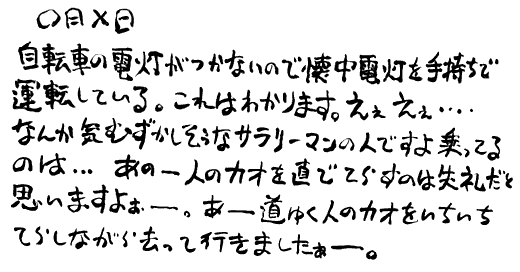 〇月×日
自転車の電灯がつかないので懐中電灯を手持ちで
運転している。これはわかります。ええ ええ‥‥
なんか気むずかしそうなサラリーマンの人ですよ乗ってる
のは… あの一人のカオを直でてらすのは失礼だと
思いますよぉー。あー道ゆく人のカオをいちいち
てらしながら去って行きましたぁー。